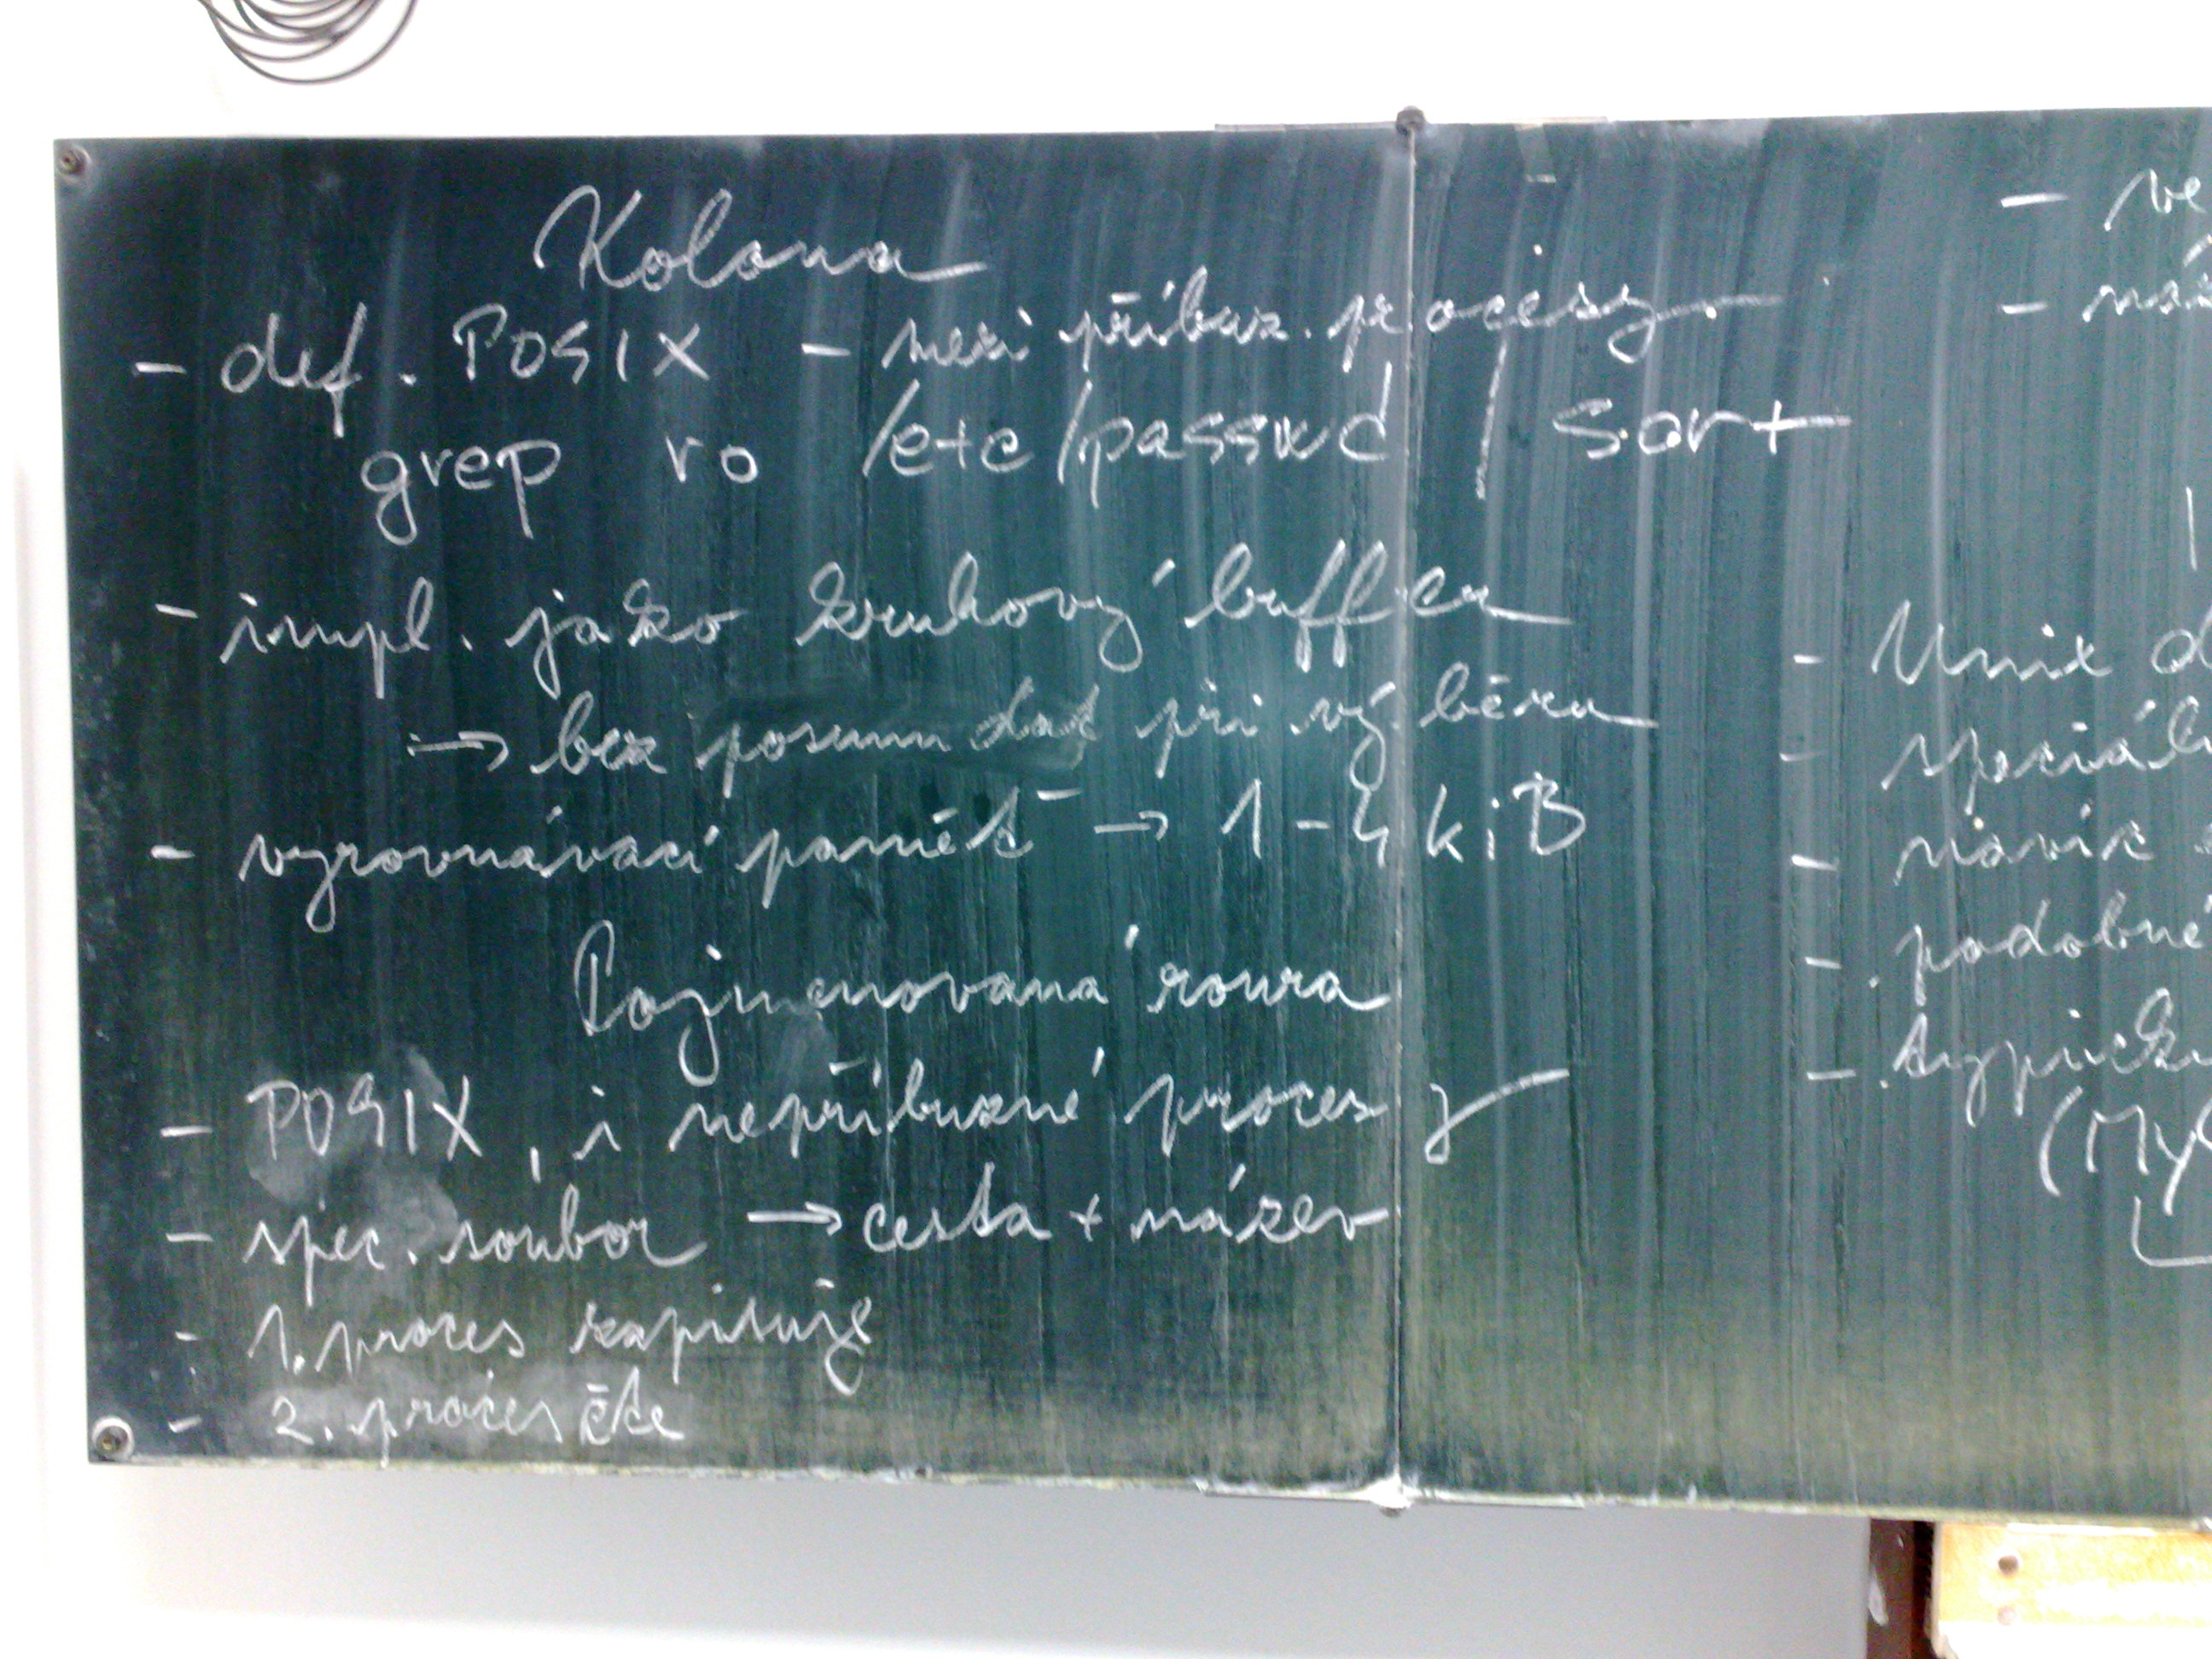 Kolona
- def. POSIX - mezi příbuz. procesy
grep ro /etc/passwd | sort
- impl. jako kruhový buffer
→ bez posunu dat při výběru
- vyrovnávací paměť → 1-4 kiB
Pojmenovaná roura
- POSIX, i nepříbuzné procesy
- spec. soubor → cesta + název
- 1. proces zapisuje
- 2. proces čte
- ve
- ná
- Unix d
- speciál
- navíc
- podobne
- typick
(My